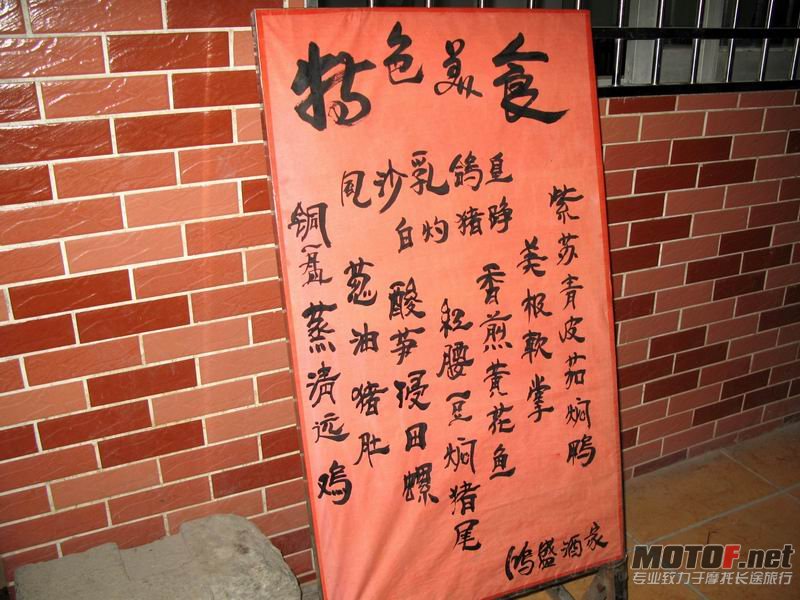 特色美食
沙乳鸽
白灼猪
紫苏青皮茄焖鸭
美根軟掌
香煎黄花鱼
红腰豆焖猪尾
酸笋浸田螺
葱油猪肚
铜盆蒸清远鸡
鸿盛酒家
MOTOF.net
专业致力于摩托长途旅行